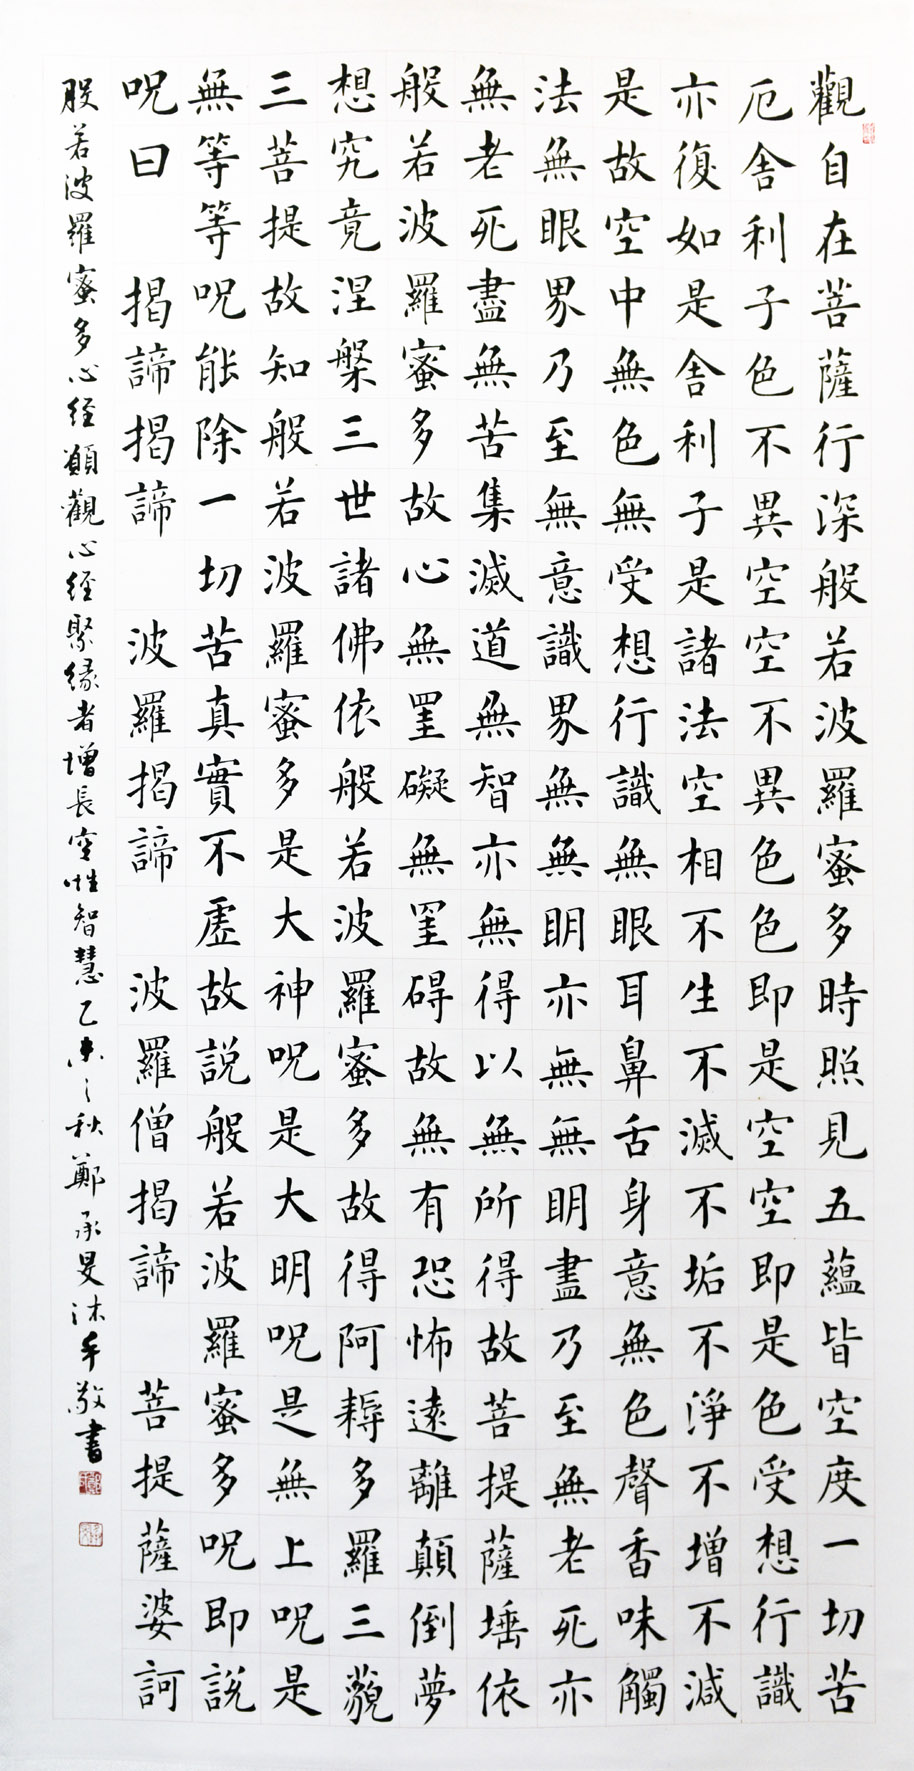 觀自在菩薩行深般若波羅蜜多時照見五蘊皆空度一切苦
厄舍利子色不異空空不異色色即是空空即是色受想行識
亦復如是舍利子是諸法空相不生不滅不垢不淨不增不減
是故空中無色無受想行識無眼耳鼻舌身意無色聲香味觸
法無眼界乃至無意識界無無眀亦無無眀盡乃至無老死亦
無老死盡無苦集滅道無智亦無得以無所得故菩提薩埵依
般若波羅蜜多故心無罣礙無罣碍故無有恐怖遠離顛倒夢
想究竟涅槃三世諸佛依般若波羅蜜多故得阿耨多羅三藐
三菩提故知般若波羅蜜多是大神呪是大明呪是無上呪是
無等等呪能除一切苦真實不虛故說般若波羅蜜多呪即說
呪曰 揭諦揭諦 波羅揭諦 波羅僧揭諦 菩提薩婆訶
般若波羅蜜多心經願觀心經聚緣者增長空性智慧乙未之秋鄭承旻沐手敬書